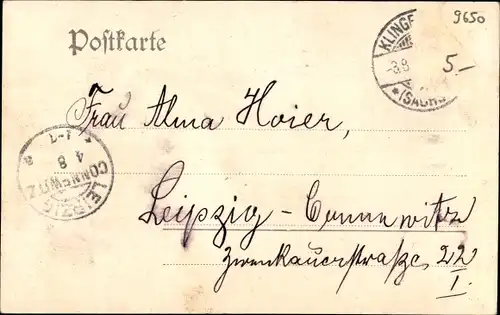 9650
Postkarte
KLINGE
-3.8
(SACHS
5.–
Frau Alma Hoier,
LEIPZIG
CONNEWITZ
4 8
Leipzig-Connewitz
Zwenkauerstraße 22
I.